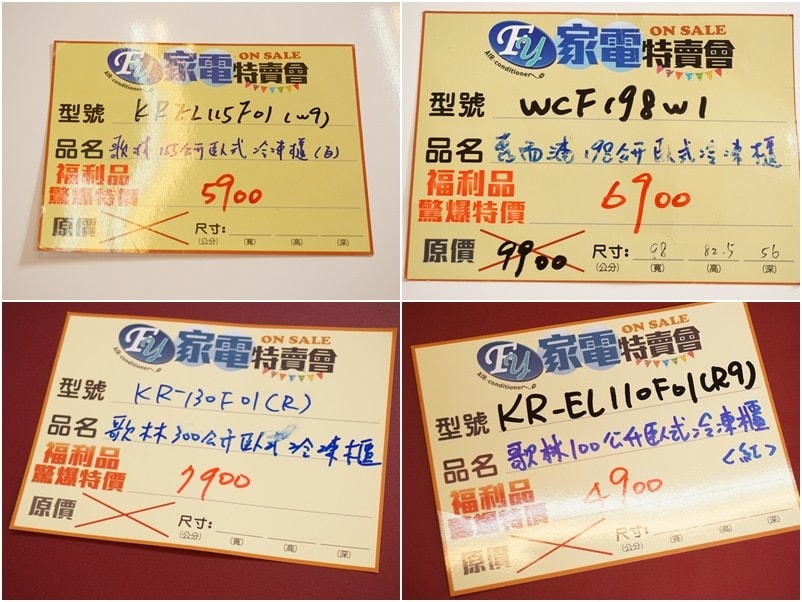 FY 家電特賣會 ON SALE
AIR-conditioner
型號 KR-EL115F01 (W9)
品名 歌林155公升臥式冷凍櫃(白)
福利品
驚爆特價 5900
原價 尺寸:
(公分) (寬) (高) (深)
FY 家電特賣會 ON SALE
AIR-conditioner
型號 WCF198W1
品名 惠而浦 198公升臥式冷凍櫃
福利品
驚爆特價 6900
原價 9900 尺寸: 98 82.5 56
(公分) (寬) (高) (深)
FY 家電特賣會 ON SALE
AIR-conditioner
型號 KR-130F01(R)
品名 歌林300公升臥式冷凍櫃
福利品
驚爆特價 7900
原價 尺寸:
(公分) (寬) (高) (深)
FY 家電特賣會 ON SALE
AIR-conditioner
型號 KR-EL110F01(R9)
品名 歌林100公升臥式冷凍櫃
<紅>
福利品
驚爆特價 4900
原價 尺寸:
(公分) (寬) (高) (深)